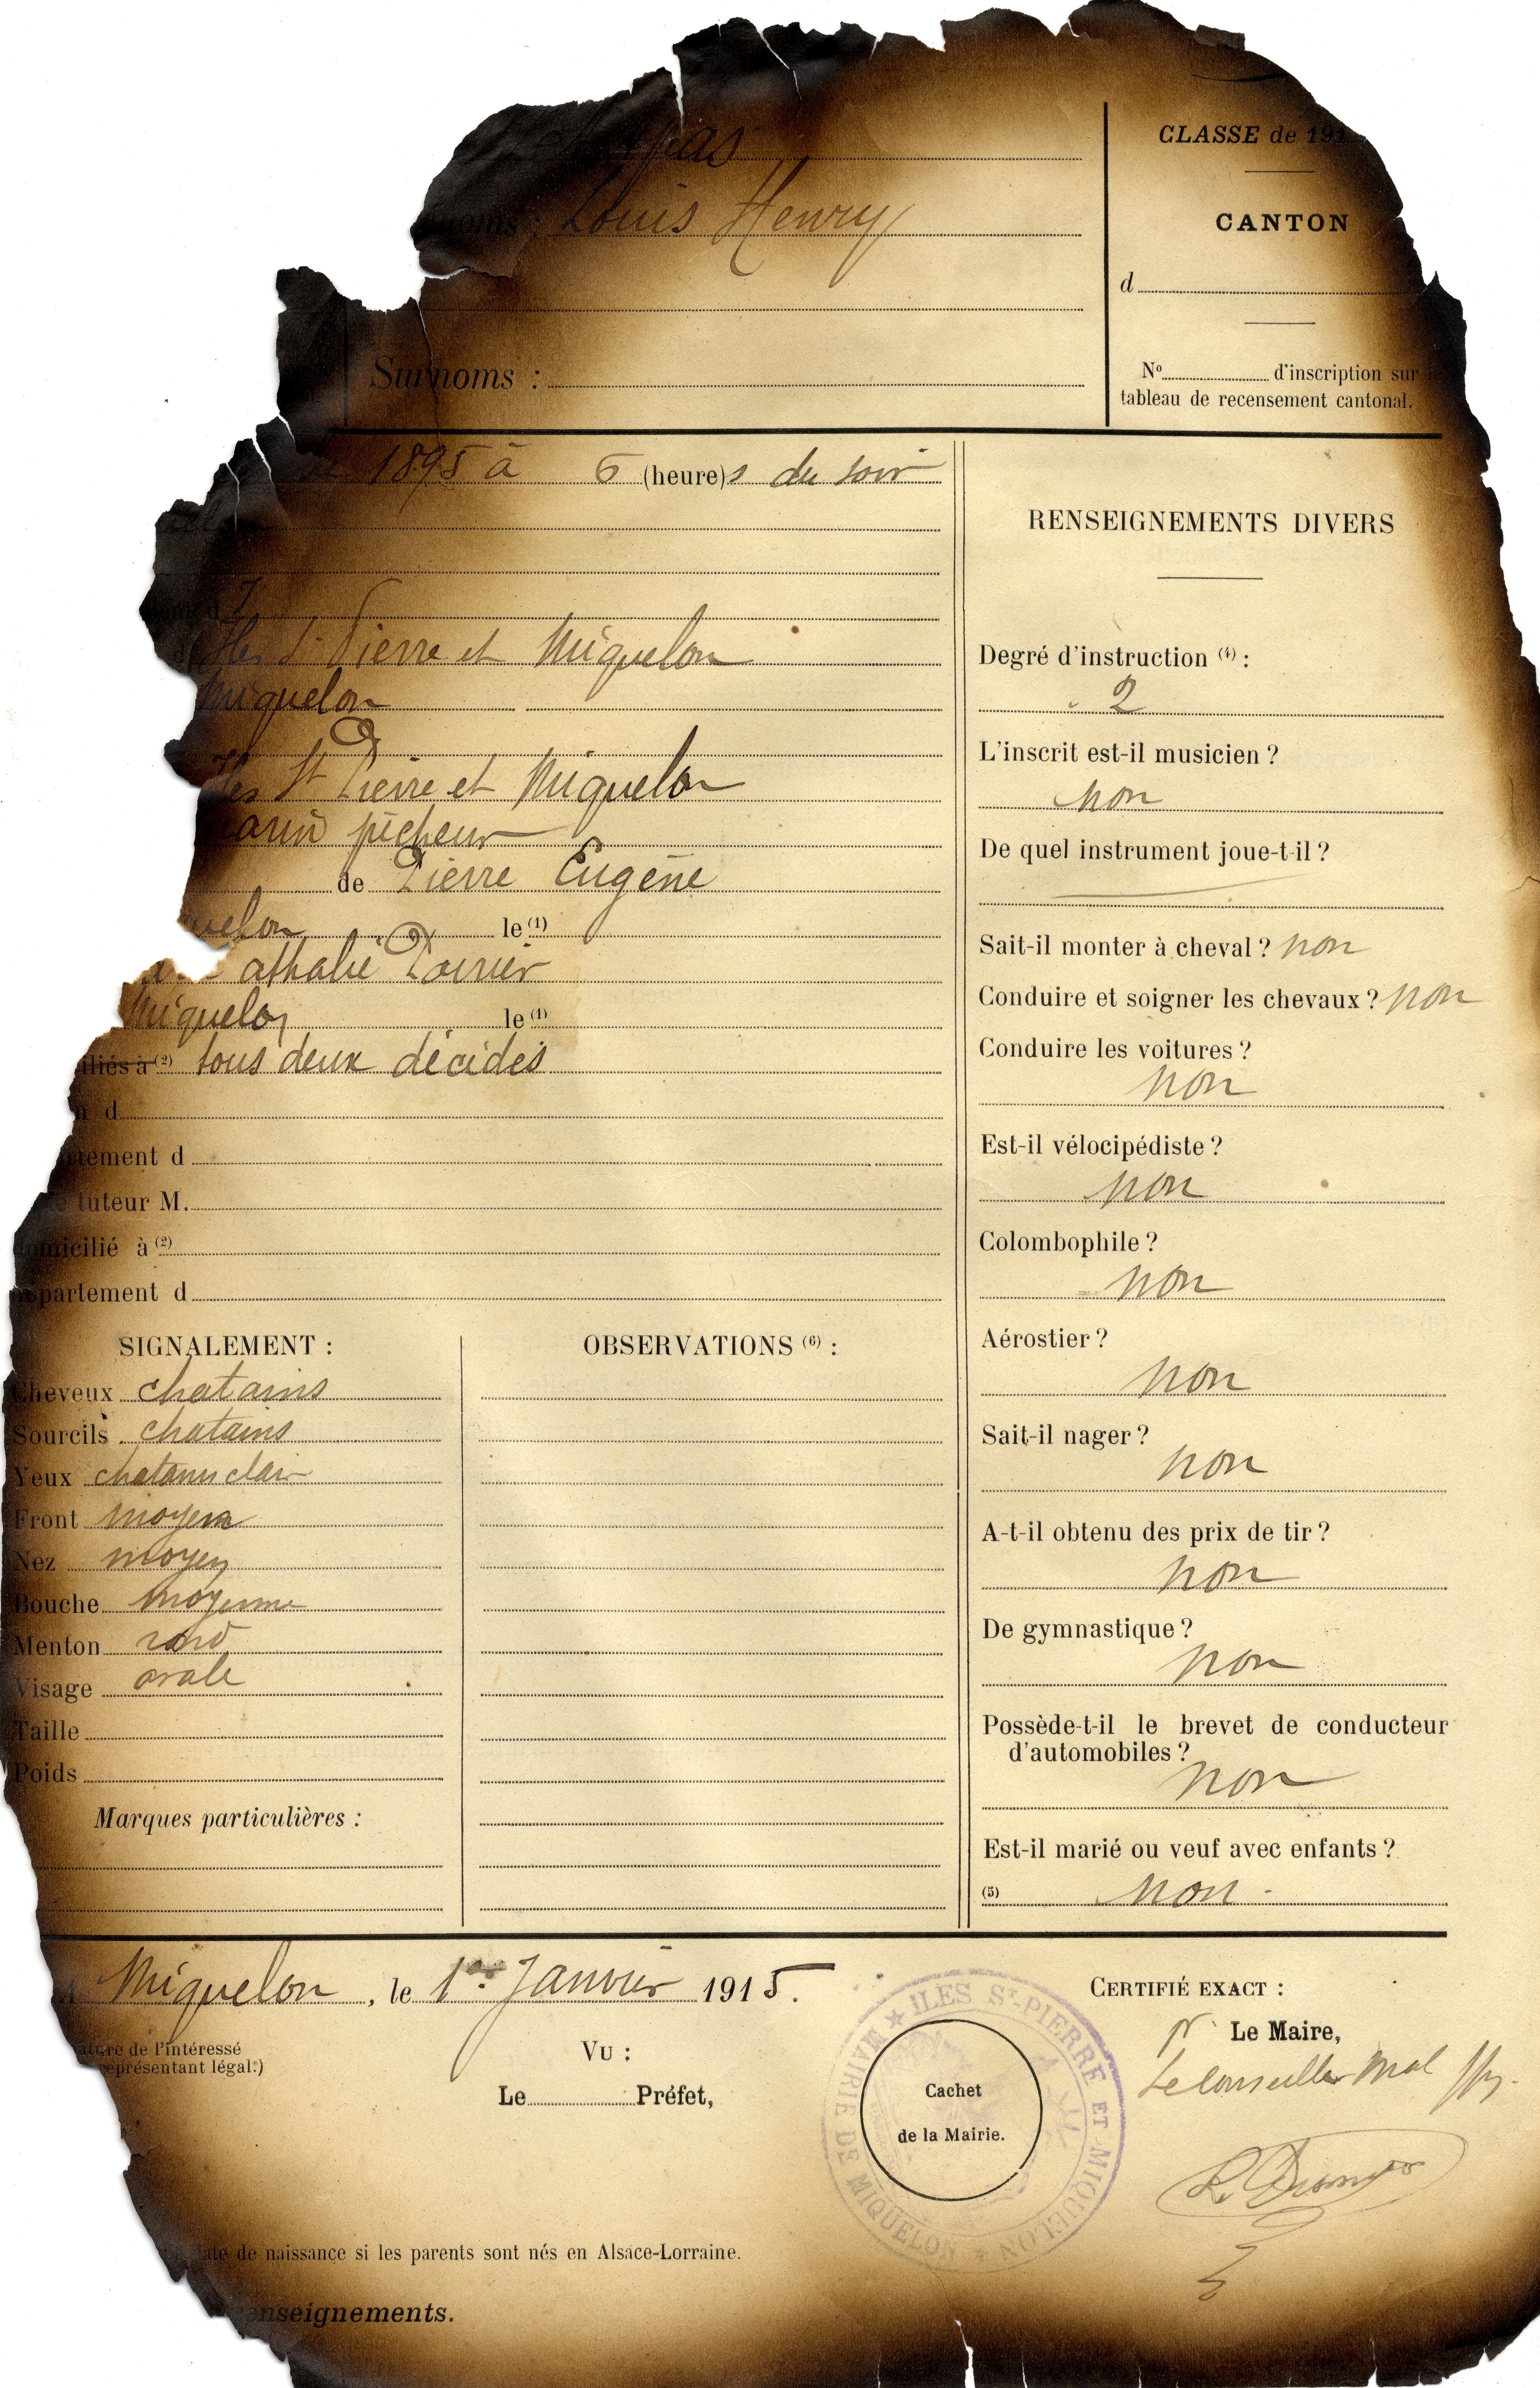 CLASSE de 191
noms : Louis Henry
CANTON
d
Surnoms :
No d'inscription sur le
tableau de recensement cantonal.
1895 à 6 (heure)s du soir
RENSEIGNEMENTS DIVERS
Iles St Pierre et Miquelon
Miquelon
Iles St Pierre et Miquelon
marin pêcheur
de Pierre Eugène
uelon le (1)
athalie Poirier
Miquelon le (1)
iliés à (2) tous deux décidés
n d
rtement d
e tuteur M.
domicilié à (2)
Département d
Degré d'instruction (4) :
2
L'inscrit est-il musicien ?
Non
De quel instrument joue-t-il ?
Sait-il monter à cheval ? non
Conduire et soigner les chevaux ? non
Conduire les voitures ?
non
Est-il vélocipédiste ?
non
Colombophile ?
non
Aérostier ?
non
Sait-il nager ?
non
A-t-il obtenu des prix de tir ?
non
De gymnastique ?
non
Possède-t-il le brevet de conducteur
d'automobiles ?
non
Est-il marié ou veuf avec enfants ?
(5) Non
SIGNALEMENT :
Cheveux chatains
Sourcils chatains
Yeux chatains clair
Front moyen
Nez moyen
Bouche moyenne
Menton rond
Visage ovale
Taille
Poids
Marques particulières :
OBSERVATIONS (6) :
A Miquelon, le 1er Janvier 1915.
ature de l'intéressé
eprésentant légal.)
Vu :
Le Préfet,
MAIRIE DE MIQUELON ★ ILES ST-PIERRE ET MIQUELON
Cachet
de la Mairie.
CERTIFIÉ EXACT :
Pr Le Maire,
Le Conseiller Mal
date de naissance si les parents sont nés en Alsace-Lorraine.
enseignements.